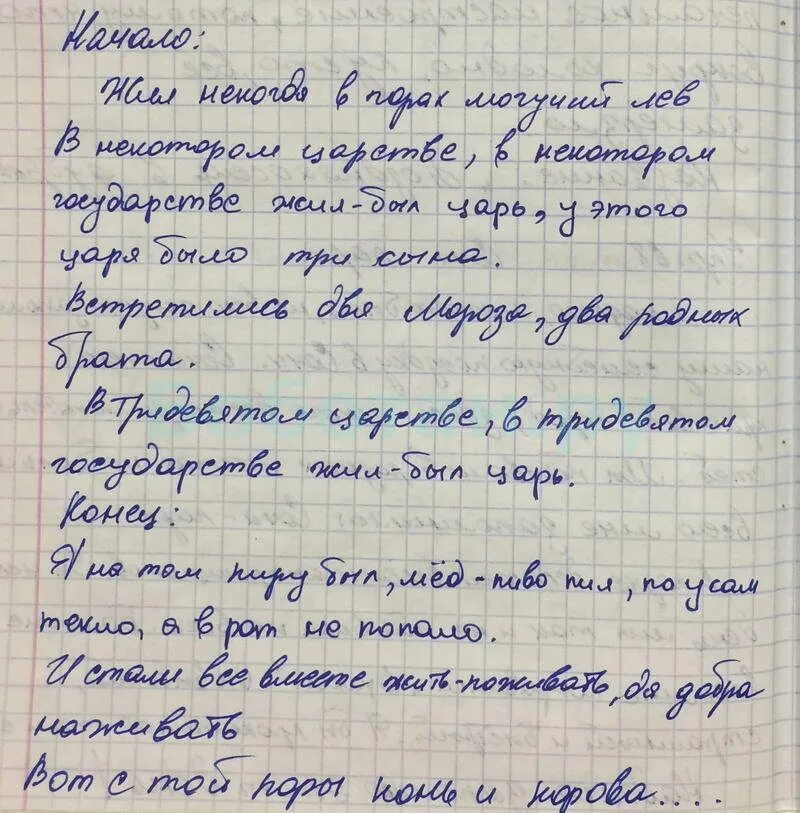 Начало:
Жил некогда в горах могучий лев
В некотором царстве, в некотором
государстве жил-был царь, у этого
царя было три сына.
Встретились два Мороза, два родных
брата.
В тридевятом царстве, в тридевятом
государстве жил-был царь.
Конец:
Я на том пиру был, мёд-пиво пил, по усам
текло, а в рот не попало.
И стали все вместе жить-поживать, да добра
наживать
Вот с той поры конь и корова....